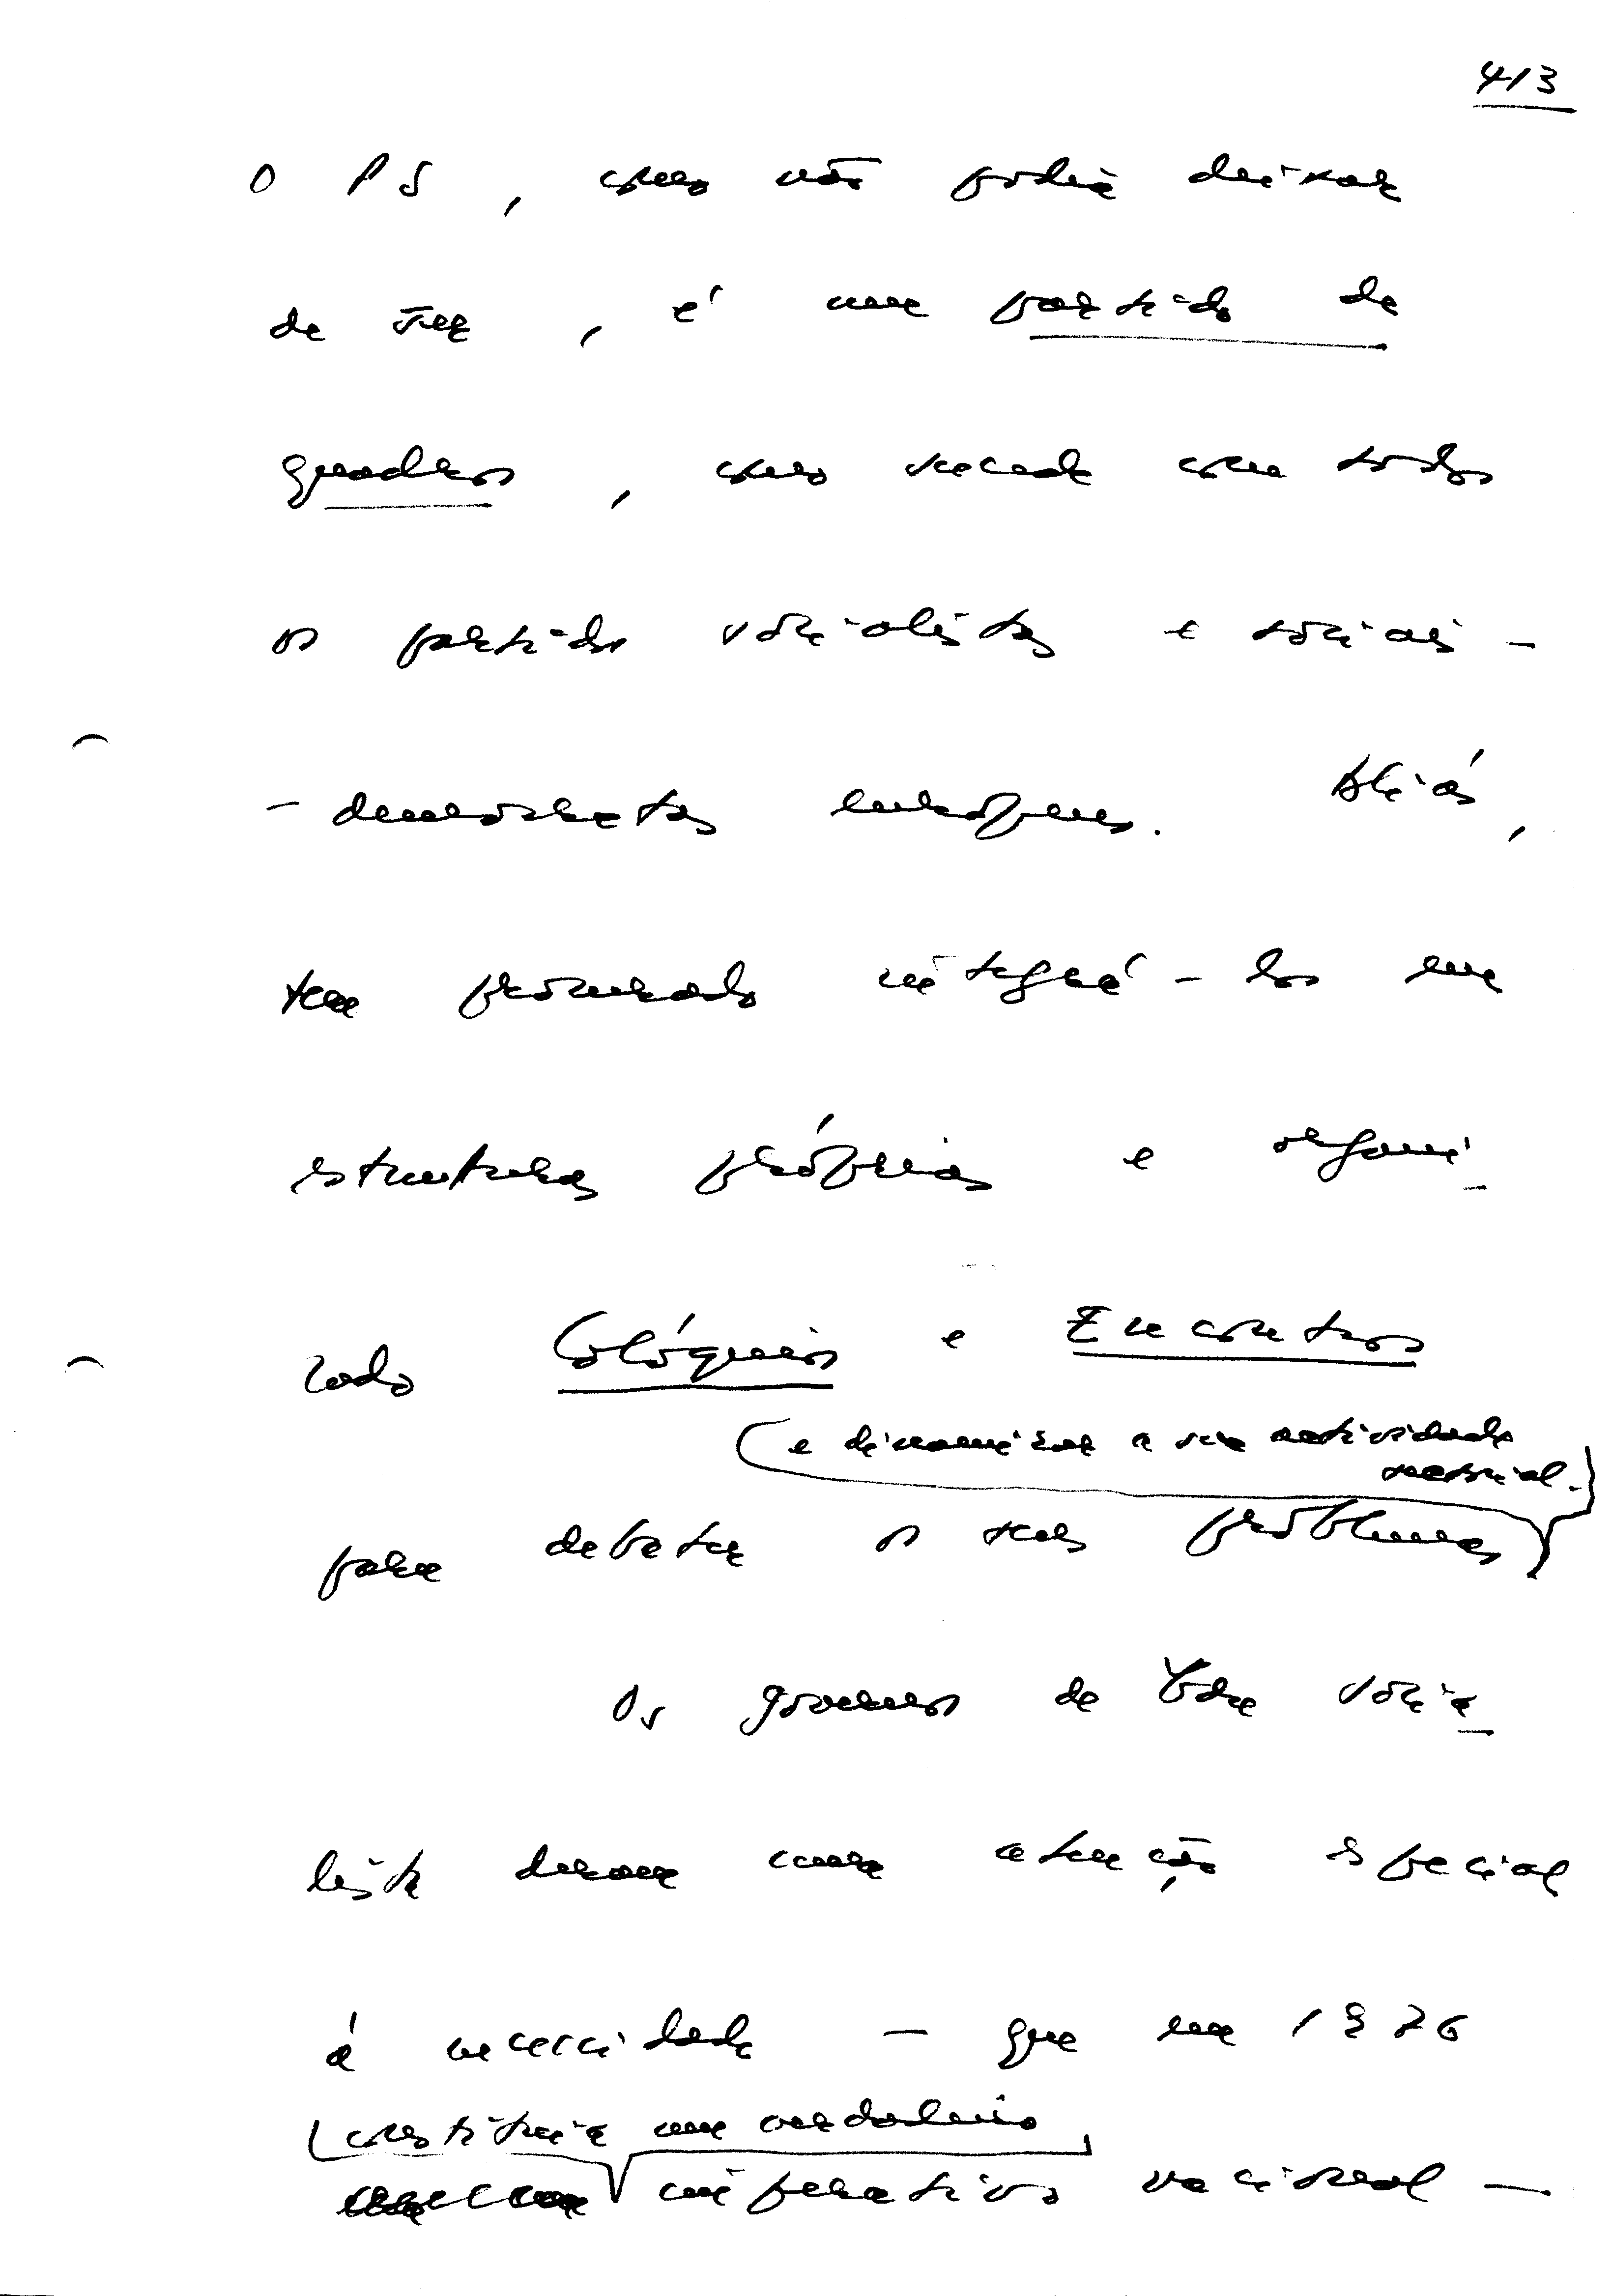 413
O PS, como não podia deixar
de ser, é um partido de
quadros, como sucede com todos
os partidos socialistas e sociais-
-democratas europeus. Aliás,
tem procurado integrá-los em
estruturas próprias e organi-
zado Colóquios e Encontros
e dinamizar a sua actividade
sectorial.
para debater os seus problemas
Os governos de base socia-
lista deram uma atenção especial
à necessidade - que em 1976
constituia um verdadeiro
imperativo nacional -